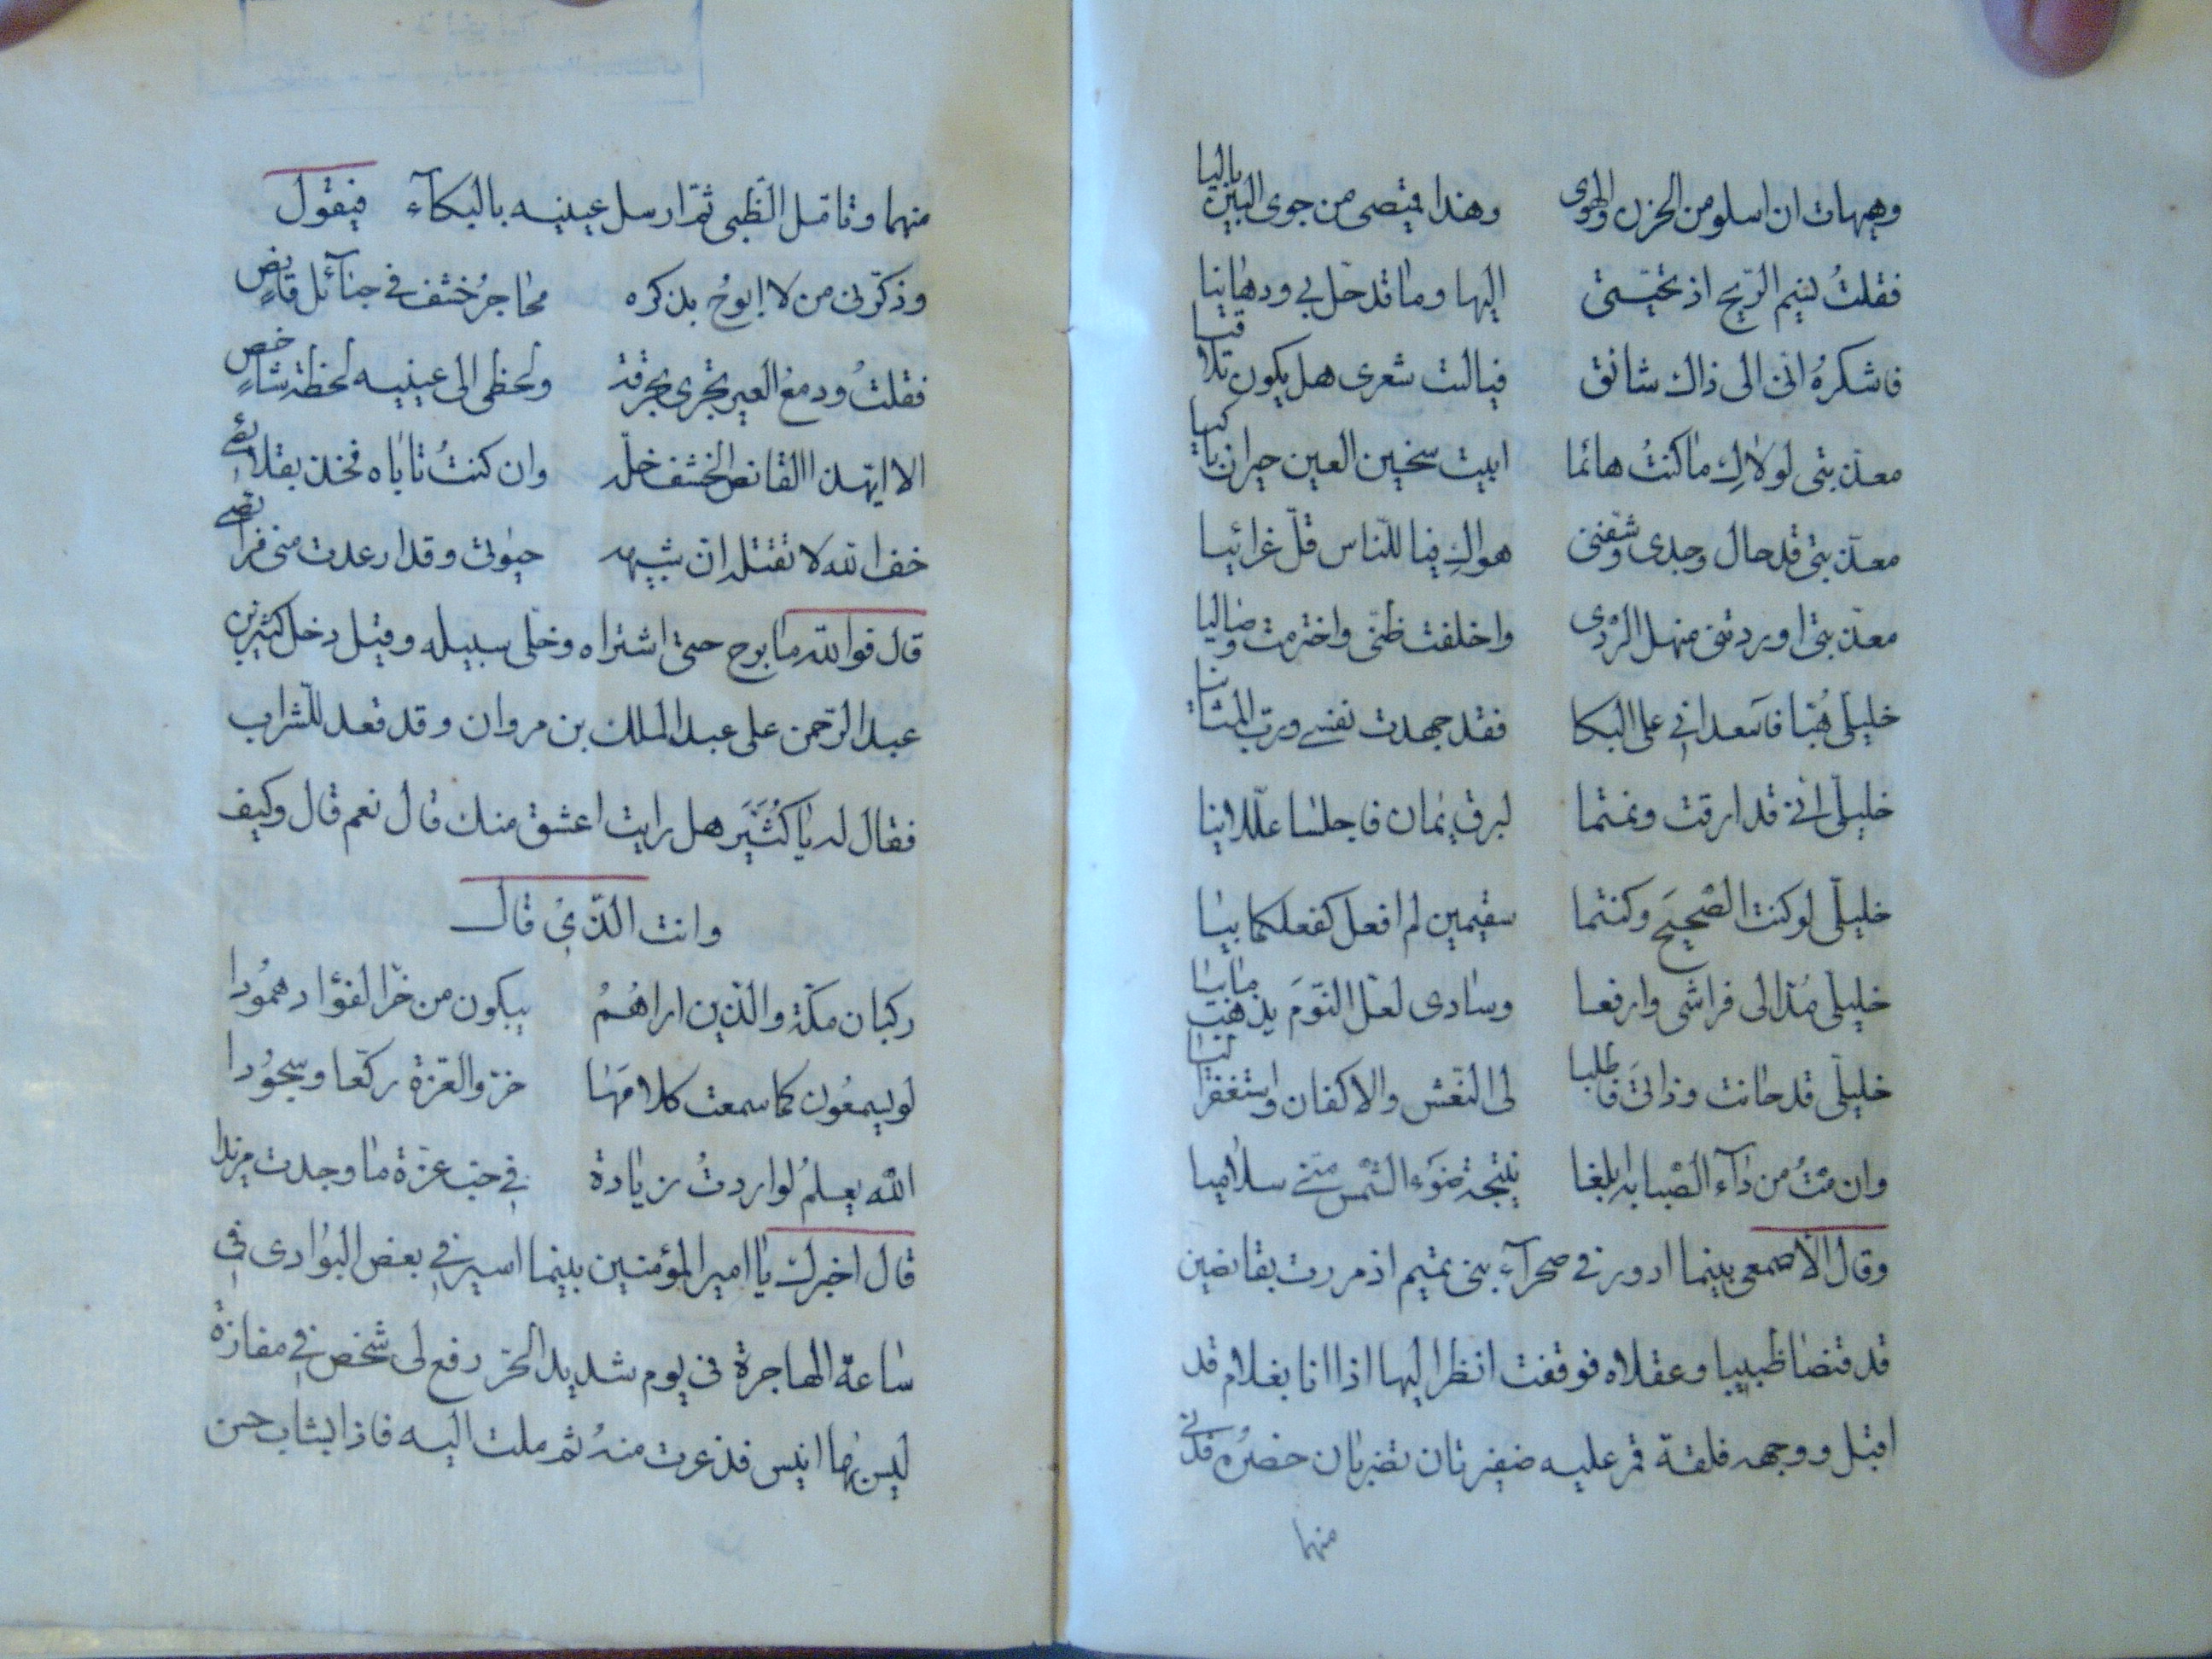 وهيهات ان اسلو من الحزن والهوى وهذا قميصى من جوى البين باليا
فقلتُ لنسيم الريح اذ تحيتى اليها وما قد حل بى ودهانيا
فاشكرهُ انى الى ذاك شائق فياليت شعرى هل يكون تلاقيا
معذبتى لولاكِ ماكنتُ هائما ابيت سخين العين حيران باكيا
معذبتى قد طال وجدى وشفنى هواكِ فيا للناس قل عزائيا
معذبتى اوردتنى منهل الردى واخلفت ظنى واخترمت وصاليا
خليلى هُبّا فاسعدانى على البكا فقد جهدت نفسى ورب المثانيا
خليلى انى قد ارقت ونمتما لبرق يمان فاجلسا عللانيا
خليلى لو كنت الصحيح وكنتما سقيمين لم افعل كفعلكما بيا
خليلى مُدّا لى فراشى وارفعا وسادى لعل النوم يذهب مابيا
خليلى قد حانت وفاتى فاطلبا لى النعش والاكفان واستغفرا ليا
وان متُ من دآء الصبابه ابلغا نتيجة ضوء الشمس منى سلاميا
وقال الاصمعى بينما ادور فى صحرآء بنى تميم اذ مررت بقانصين
قد قنصا ظبيا وعقلاه فوقفت انظر اليها اذا انا بغلام قد
اقبل ووجهه فلقة قمر عليه ضفيرتان تضربان خصره فدنى
منهما
منهما وتامل الظبى ثم ارسل عينيه بالبكآء فيقول
وذكرنى من لا ابوحُ بذكره محاجرُ خشف فى حبآئل قانصٍ
فقلتُ ودمعُ العين يجرى بحرقة ولحظى الى عينيه لحظة شاخصٍ
الا ايهذا القانص الخشف خله وان كنتُ تاباه فخذ بقلائصى
خف الله لا تقتله ان شبيهه حيوتى وقد ارعدت منى فرائصى
قال فوالله مابرح حتى اشتراه وخلى سبيله وقيل دخل كثير بن
عبد الرحمن على عبد الملك بن مروان وقد قعد للشراب
فقال له ياكُثَيَر هل رايت اعشق منك قال نعم قال وكيف
وانت الذى قال
ركبان مكة والذين اراهُمُ يبكون من حر الفؤاد همُودا
لو يسمعُون كما سمعت كلامها خروا لعزة ركعا وسجُودا
الله يعلمُ لو اردتُ زيادة فى حب عزة ما وجدت مزيدا
قال اخبرك يا امير المؤمنين بينما اسير فى بعض البوادى فى
ساعة الهاجرة فى يوم شديد الحر رفع لى شخص فى مفازة
ليس بها انيس فذعرت منهُ ثم ملت اليه فاذا بشاب حسن